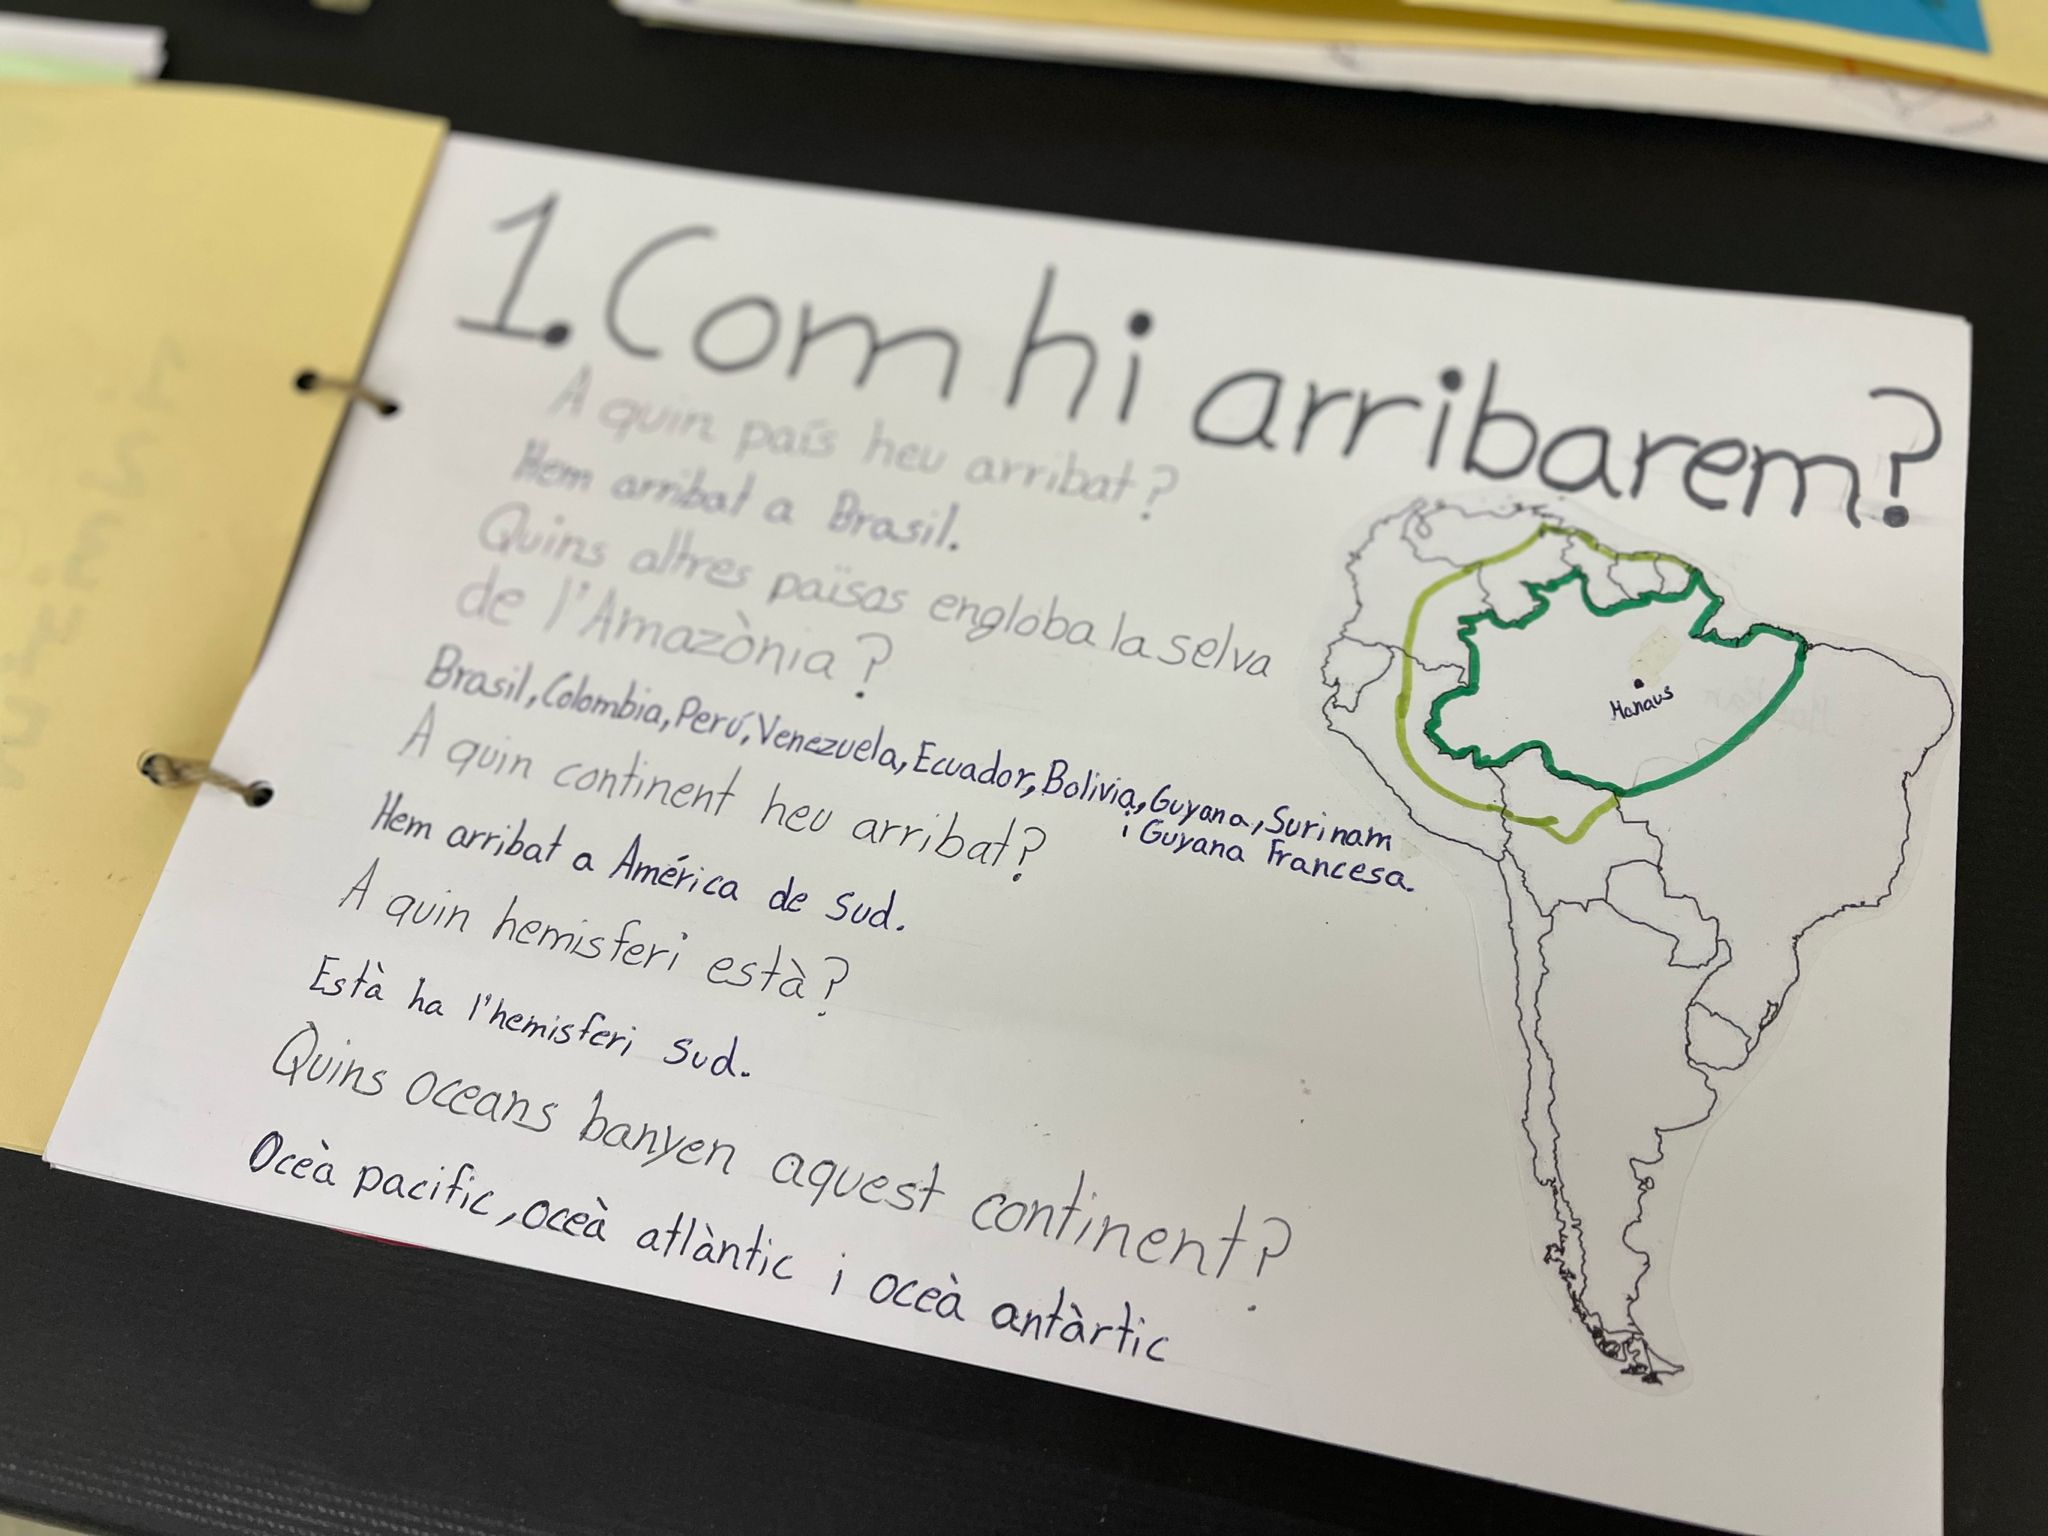 1. Com hi arribarem?
A quin país heu arribat?
Hem arribat a Brasil.
Quins altres països engloba la selva
de l'Amazònia?
Brasil, Colombia, Perú, Venezuela, Ecuador, Bolivia, Guyana, Surinam
i Guyana Francesa.
A quin continent heu arribat?
Hem arribat a América de Sud.
A quin hemisferi està?
Està ha l'hemisferi sud.
Quins oceans banyen aquest continent?
Oceà pacific, oceà atlàntic i oceà antàrtic
Manaus